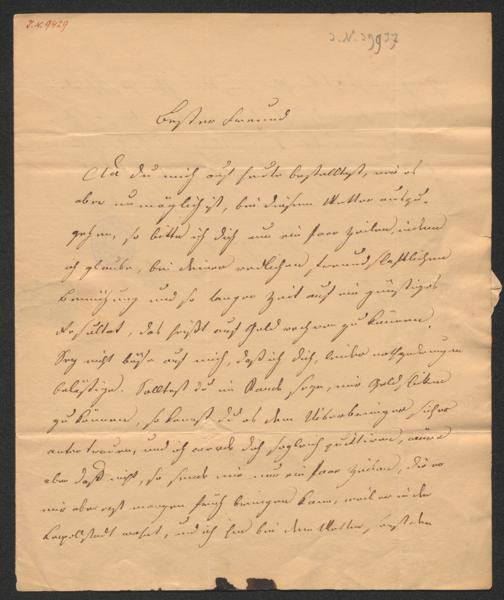 I.N. 9429
I.N. 39937
Bester Freund
Da du mich auf heute bestelltest, mir es
aber unmöglich ist, bei diesem Wetter auszu-
gehen, so bitte ich dich um ein paar Zeilen, indem
ich glaube, bei deiner redlichen, freundschaftlichen
Bemühung und so langer Zeit auf ein günstiges
Resultat, das heißt auf Geld rechnen zu können.
Sey nicht böse auf mich, daß ich dich, leider nothgedrungen
belästige. Solltest du im Stande seyn, mir Geld
zu können, so kannst du es dem Überbringer sicher
anvertrauen, und ich werde dich sogleich quittiren, wäre
aber dieß nicht, so sende mir nur ein paar Zeilen, die er
mir aber erst morgen früh bringen kann, weil er in der
Leopoldstadt wohnt, und ich ihn bei dem Wetter,